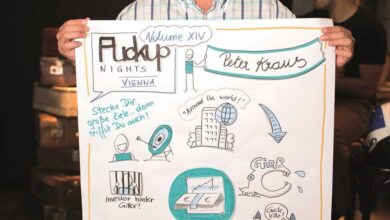 Volume XIV
Fuckup
NIGHTS
VIENNA
Peter Kraus
Stecke Dir
große Ziele, dann
triffst Du auch!
"Around the world!"
GIER
Investor hinter
Gitter!